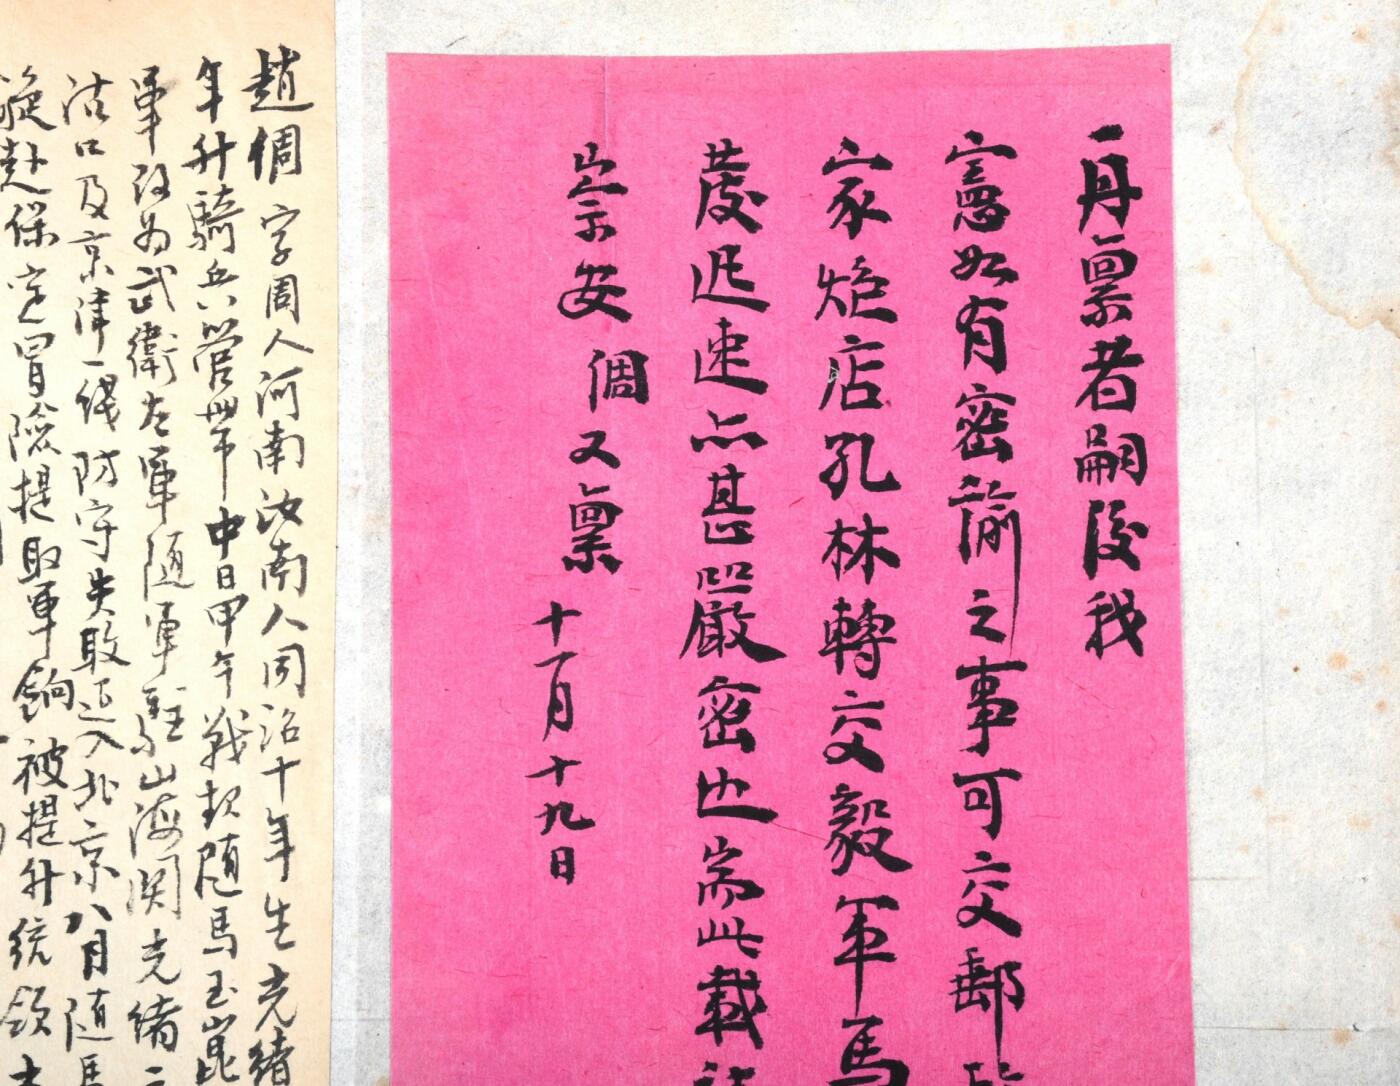 再稟者嗣後我
憲如有密諭之事可交郵
家炬店孔林轉交毅軍馬
發迅速亦甚嚴密也耑此載
崇安 倜又稟 十一月十九日
趙倜 字周人河南汝南人同治十年生光緒
年升騎兵營帶中日甲午戰起隨馬玉崑
軍改為武衛左軍隨軍駐山海関光緒二
沽口及京津一綫防守失敗退入北京八月隨馬
旋赴保定冒險提取軍餉被提升統領